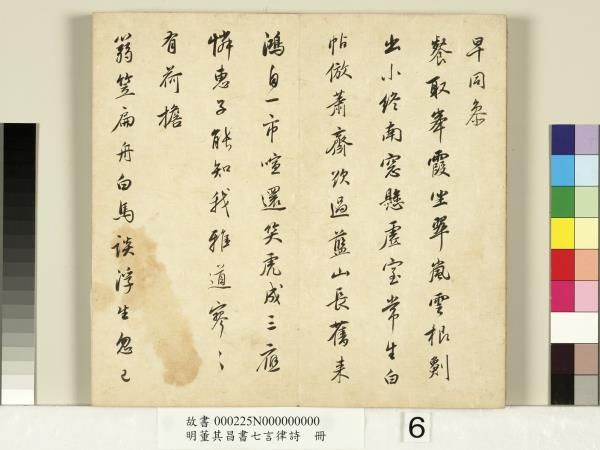 早同参
餐取峯霞坐翠嵐雲根劚
出小終南窓懸虛室常生白
帖倣蕭齋欲過藍山長舊来
鴻自一市喧還笑虎成三應
憐惠子能知我雅道寥〻
有荷擔
蒻笠扁舟白馬談浮生忽已
故書 000225N000000000
明董其昌書七言律詩 冊
6